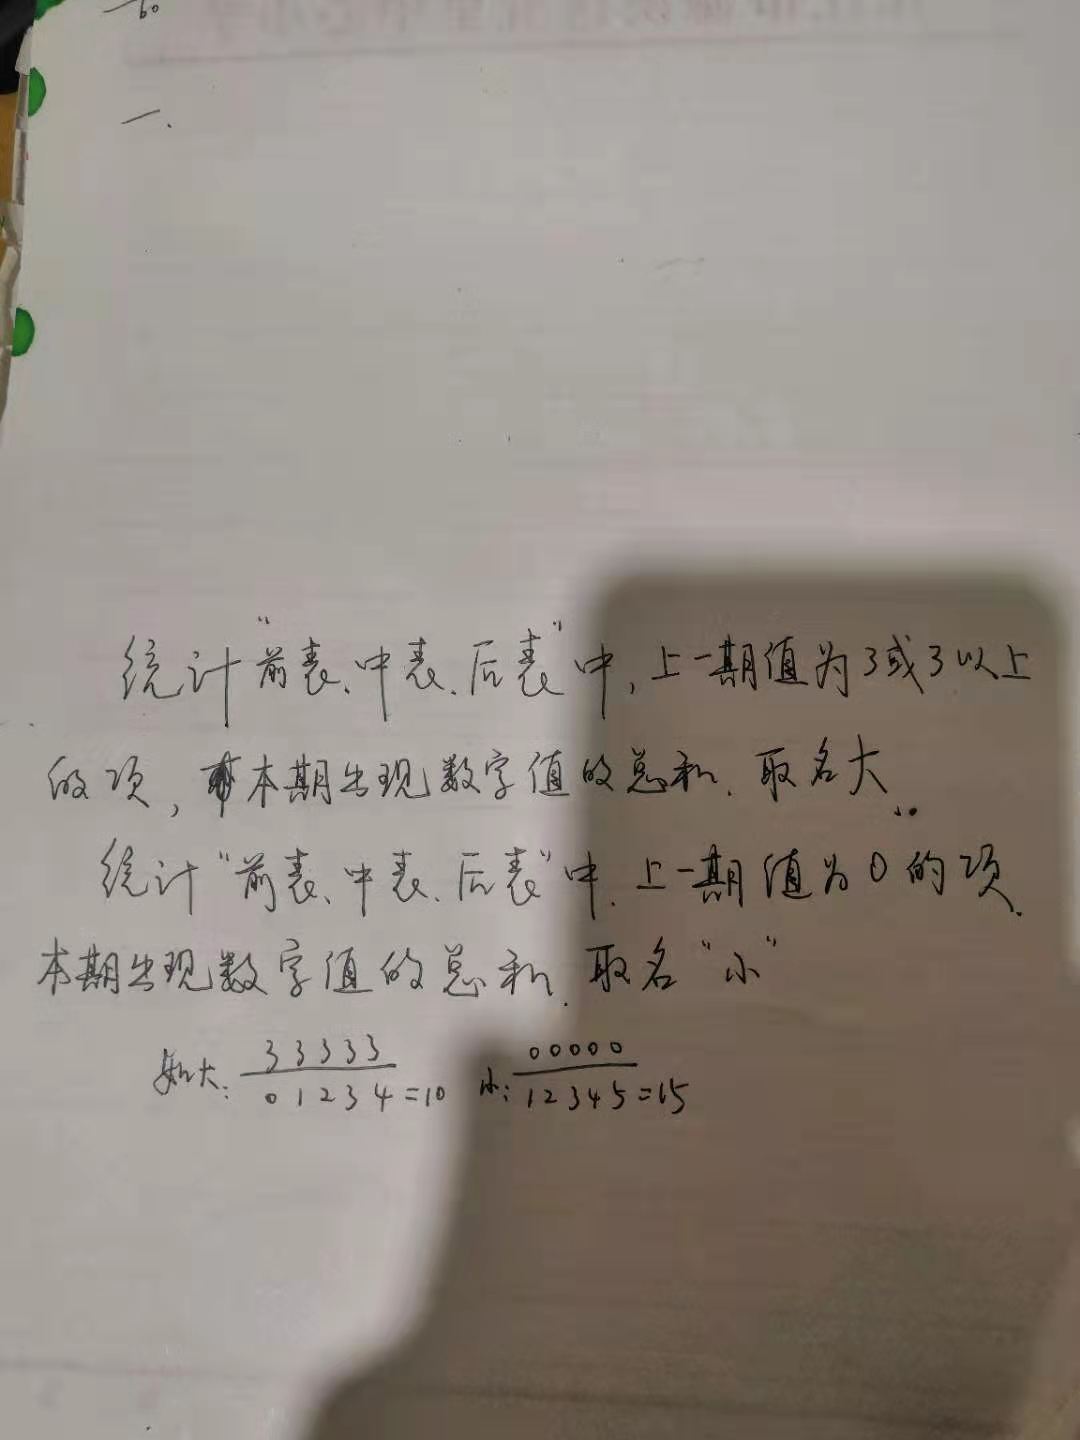 60
一.
统计“前表、中表、后表”中,上一期值为3或3以上
的项,本期出现数字值的总和.取名大..
统计“前表、中表、后表”中.上一期值为0的项.
本期出现数字值的总和.取名“小”
如大: 3 3 3 3 3 小: 0 0 0 0 0
0 1 2 3 4 = 10 1 2 3 4 5 = 15